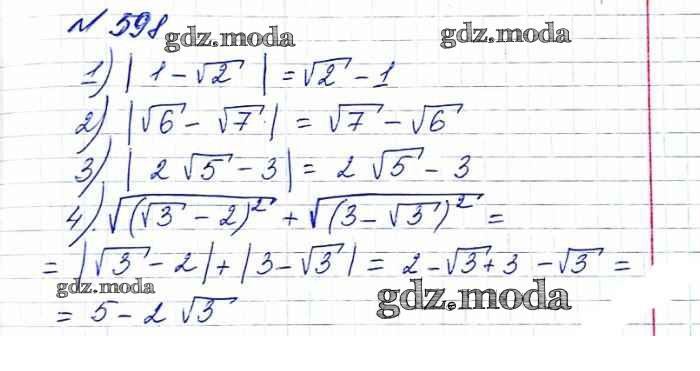 № 598
gdz.moda
gdz.moda
1) |1 - √2| = √2 - 1
2) |√6 - √7| = √7 - √6
3) |2√5 - 3| = 2√5 - 3
4) √(√3 - 2)² + √(3 - √3)² =
= |√3 - 2| + |3 - √3| = 2 - √3 + 3 - √3 =
gdz.moda
gdz.moda
= 5 - 2√3